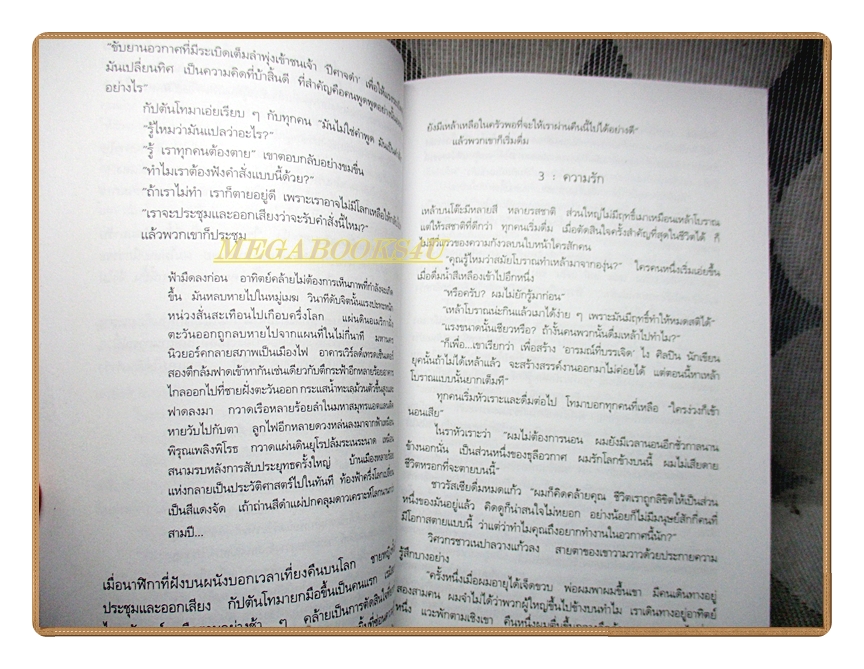 "ขับยานอวกาศที่มีระเบิดเต็มลำพุ่งเข้าชนเจ้า 'ปีศาจดำ' เพื่อให้
มันเปลี่ยนทิศ เป็นความคิดที่บ้าสิ้นดี ที่สำคัญคือคนพูดพูดอย่างนั้น
อย่างไร"
กัปตันโทมาเอ่ยเรียบ ๆ กับทุกคน "มันไม่ใช่คำพูด มันเป็น
"รู้ไหมว่ามันแปลว่าอะไร?"
"รู้ เราทุกคนต้องตาย" เขาตอบกลับอย่างขมขื่น
"ทำไมเราต้องฟังคำสั่งแบบนี้ด้วย?"
"ถ้าเราไม่ทำ เราก็ตายอยู่ดี เพราะเราอาจไม่มีโลกเหลือให้
"เราจะประชุมและออกเสียงว่าจะรับคำสั่งนี้ไหม?"
แล้วพวกเขาก็ประชุม
MEGABOOKS4U
ฟ้ามืดลงก่อน อาทิตย์คล้ายไม่ต้องการเห็นภาพที่กำลังจะเกิด
ขึ้น มันหลบหายไปในหมู่เมฆ วินาทีดับจิตนั้นแรงปะทะหนัก
หน่วงสั่นสะเทือนไปเกือบครึ่งโลก แผ่นดินอเมริกาฝั่ง
ตะวันออกถูกลบหายไปจากแผนที่ในไม่กี่นาที มหานคร
นิวยอร์คกลายสภาพเป็นเมืองไฟ อาคารเวิร์ลด์เทรดเซ็นเตอร์
สองตึกล้มฟาดเข้าหากันเช่นเดียวกับตึกระฟ้าอีกหลายร้อยอาคาร
ไกลออกไปที่ชายฝั่งตะวันออก กระแสน้ำทะเลม้วนตัวขึ้นสูงและ
ฟาดลงมา กวาดเรือหลายร้อยลำในมหาสมุทรแอตแลนติค
หายวับไปกับตา ลูกไฟอีกหลายดวงหล่นลงมาจากฟ้าเหมือน
พิรุณเพลิงพิโรธ กวาดแผ่นดินยุโรปล้มระเนระนาด เหมือน
สนามรบหลังการสัประยุทธครั้งใหญ่ บ้านเมืองหลายร้อย
แห่งกลายเป็นประวัติศาสตร์ไปในทันที ท้องฟ้าครึ่งโลกเปลี่ยน
เป็นสีแดงจัด เถ้าถ่านสีดำแผ่ปกคลุมดาวเคราะห์โลกนานกว่า
สามปี...
เมื่อนาฬิกาที่ฝังบนผนังบอกเวลาเที่ยงคืนบนโลก ชายหญิง
ประชุมและออกเสียง กัปตันโทมายกมือขึ้นเป็นคนแรก
อย่างช้า ๆ คล้ายเป็นการตัดสินใจ
ยังมีเหล้าเหลือในครัวพอที่จะให้เราผ่านคืนนี้ไปได้อย่างดี"
แล้วพวกเขาก็เริ่มดื่ม
3 : ความรัก
เหล้าบนโต๊ะมีหลายสี หลายรสชาติ ส่วนใหญ่ไม่มีฤทธิ์เมาเหมือนเหล้าโบราณ
แต่ให้รสชาติที่ดีกว่า ทุกคนเริ่มดื่ม เมื่อตัดสินใจครั้งสำคัญที่สุดในชีวิตได้ ก็
ไม่มีวี่แววของความกังวลบนใบหน้าใครสักคน
"คุณรู้ไหมว่าสมัยโบราณทำเหล้ามาจากองุ่น?" ใครคนหนึ่งเริ่มเอ่ยขึ้น
เมื่อดื่มน้ำสีเหลืองเข้าไปอีกหนึ่ง
"หรือครับ? ผมไม่ยักรู้มาก่อน"
"เหล้าโบราณน่ะกินแล้วเมาได้ง่าย ๆ เพราะมันมีฤทธิ์ทำให้หมดสติได้"
"แรงขนาดนั้นเชียวหรือ? ถ้างั้นคนพวกนั้นดื่มเหล้าไปทำไม?"
"ก็เพื่อ...เขาเรียกว่า เพื่อสร้าง 'อารมณ์ที่บรรเจิด' ไง ศิลปิน นักเขียน
ยุคนั้นถ้าไม่ได้เหล้าแล้ว จะสร้างสรรค์งานออกมาไม่ค่อยได้ แต่ตอนนี้หาเหล้า
โบราณแบบนั้นยากเต็มที"
ทุกคนเริ่มหัวเราะและดื่มต่อไป โทมาบอกทุกคนที่เหลือ "ใครง่วงก็เข้า
นอนเสีย"
ไนราหัวเราะว่า "ผมไม่ต้องการนอน ผมยังมีเวลานอนอีกชั่วกาลนาน
ข้างนอกนั่น เป็นส่วนหนึ่งของธุลีอวกาศ ผมรักโลกข้างบนนี้ ผมไม่เสียดาย
ชีวิตหรอกที่จะตายบนนี้"
ชาวรัสเซียดื่มหมดแก้ว "ผมก็คิดคล้ายคุณ ชีวิตเราถูกลิขิตให้เป็นส่วน
หนึ่งของมันอยู่แล้ว คิดดูก็น่าสนใจไม่หยอก อย่างน้อยก็ไม่มีมนุษย์สักกี่คนที่
มีโอกาสตายแบบนี้ ว่าแต่ว่าทำไมคุณถึงอยากทำงานในอวกาศนี้นัก?"
วิศวกรชาวเนปาลวางแก้วลง สายตาของเขาวามวาวด้วยประกายความ
รู้สึกบางอย่าง
"ครั้งหนึ่งเมื่อผมอายุได้เจ็ดขวบ พ่อผมพาผมขึ้นเขา มีคนเดินทางอยู่
สองสามคน ผมจำไม่ได้ว่าพวกผู้ใหญ่ขึ้นไปข้างบนทำไม เราเดินทางอยู่อาทิตย์
หนึ่ง แวะพักตามเชิงเขา คืนหนึ่งผมตื่นขึ้น